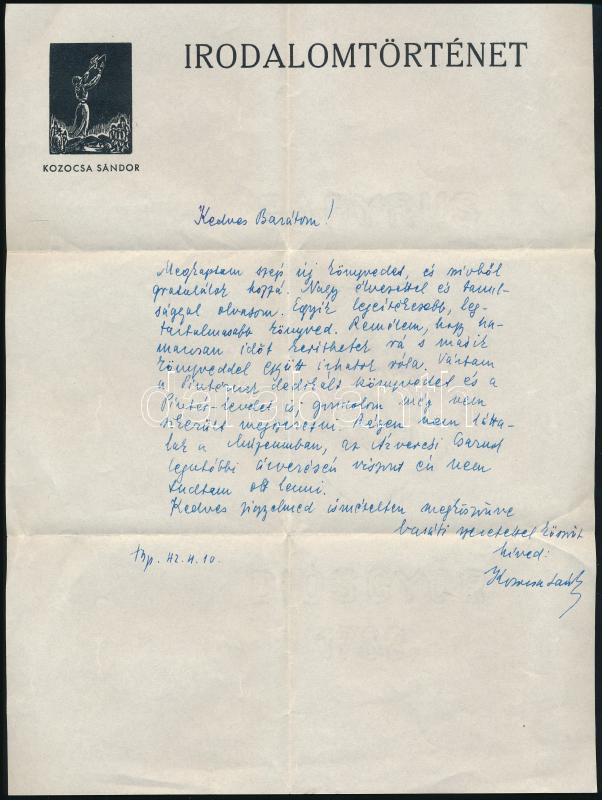 IRODALOMTÖRTÉNET
KOZOCSA SÁNDOR
Kedves Barátom!
Megkaptam szép új könyvedet, és szivből
gratulálok hozzá. Nagy élvezettel és tanul-
sággal olvasom. Egyik legsikerültebb, leg-
tartalmasabb könyved. Remélem, hogy ha-
marosan időt keríthetek rá s másik
könyveddel együtt írhatok róla. Vártam
a Pinternek dedikált könyvedet és a
Pintér-levelet is, gondolom még nem
sikerült megszerezni. Régen nem látta-
lak a Múzeumban, az Ernő
legutóbbi árverésén viszont én nem
tudtam ott lenni.
Kedves figyelmed ismételten megköszönve
baráti szeretettel köszönt
híved:
Kozocsa Sándor
Bp. 42. II. 10.
darabanth